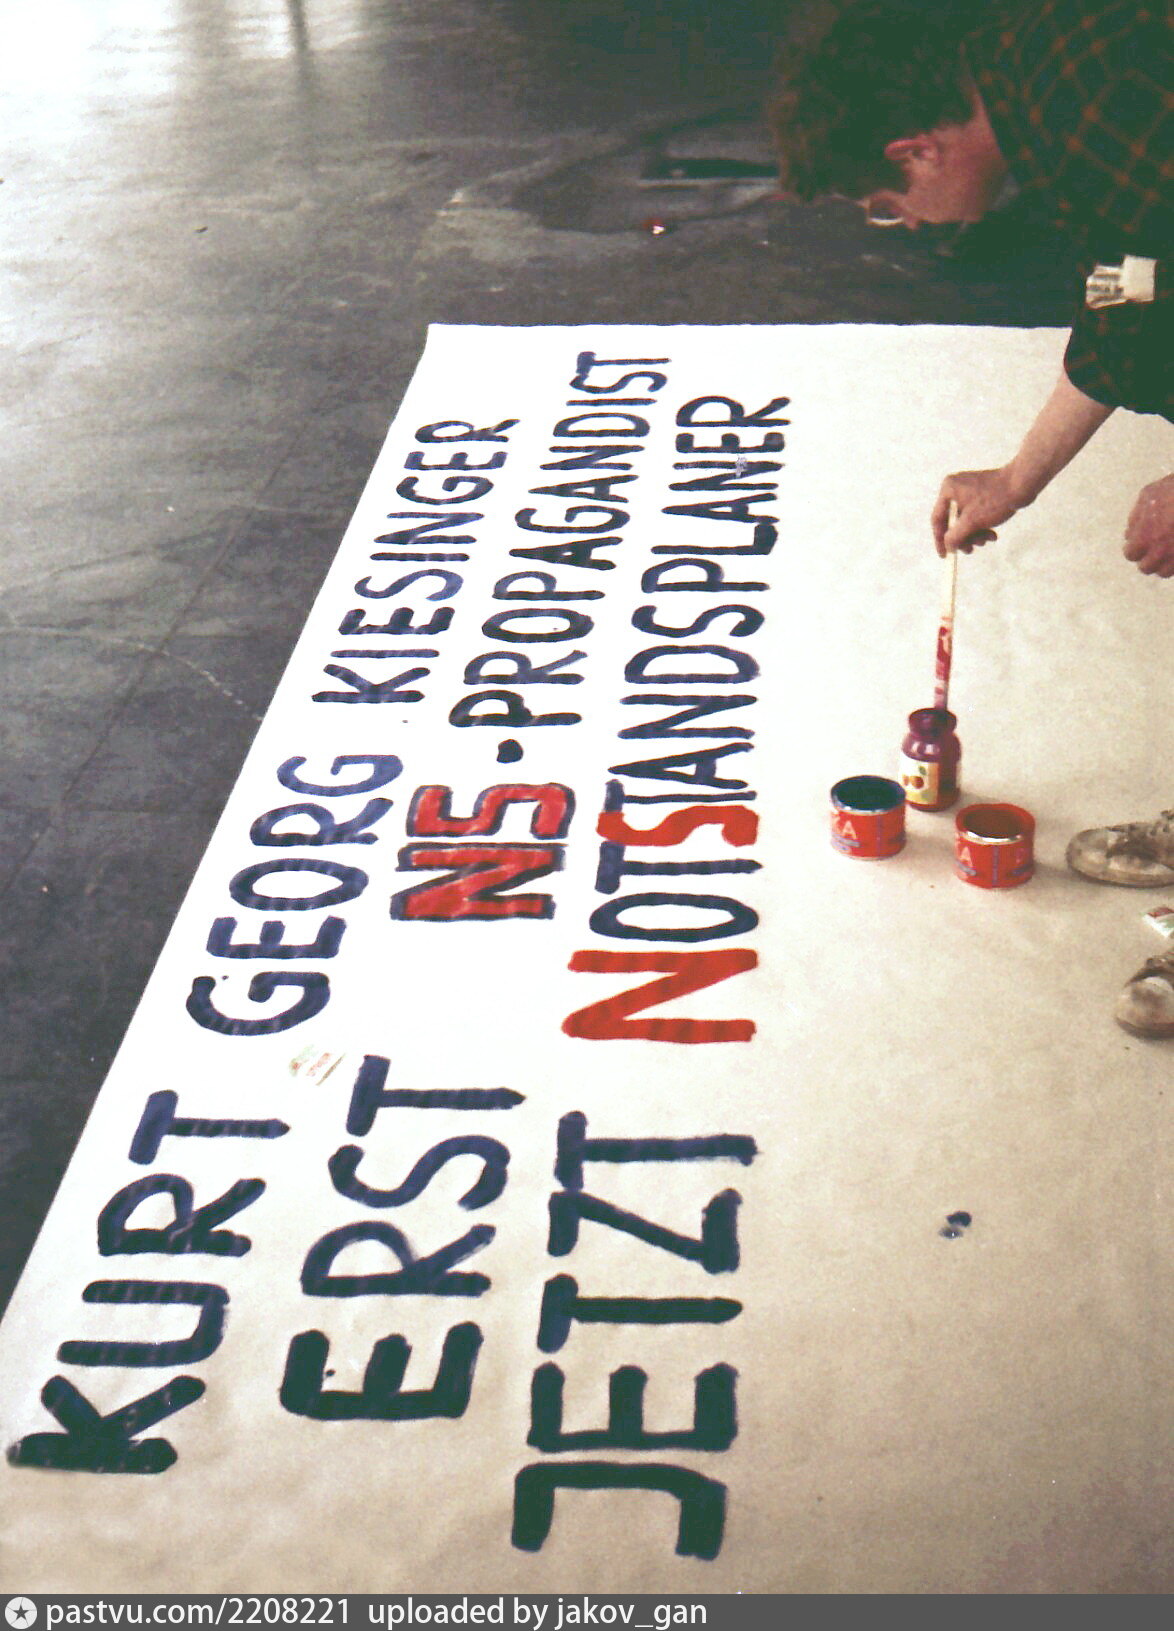 KURT GEORG KIESINGER
ERST NS-PROPAGANDIST
JETZT NOTSTANDSPLANER
KA
A
pastvu.com/2208221 uploaded by jakov_gan